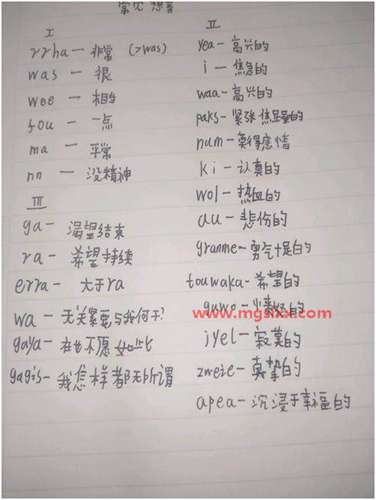 常见
I
rrha — 非常 (>was)
was — 很
wee — 相当
fou — 一点
ma — 平常
nn — 没精神
III
ga — 渴望结束
ra — 希望持续
erra — 大于ra
wa — 无关紧要与我何干?
gaya — 在也不愿如此
gagis — 我怎样都无所谓
II
yea — 高兴的
i — 焦急的
waa — 高兴的
paks — 紧张焦虑的
num — 莫得感情
ki — 认真的
wol — 热血的
au — 悲伤的
granme — 勇气十足的
touwaka — 希望的
guwo —
jyel — 寂寞的
zweie — 真挚的
apea — 沉浸于幸福的